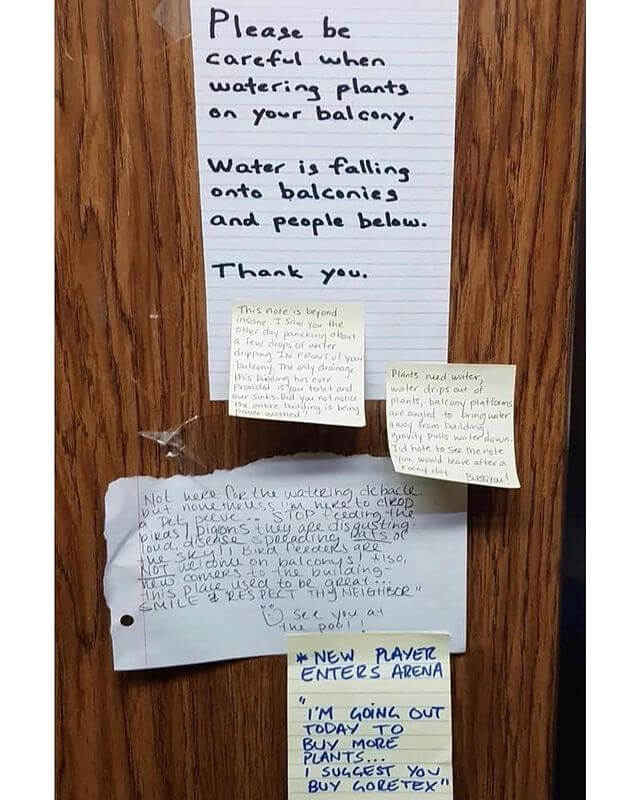 Please be
careful when
watering plants
on your balcony.
Water is falling
onto balconies
and people below.
Thank you.
This note is beyond
insane. I saw you the
other day panicking about
a few drops of water
dripping IN FRONT of your
balcony. The only drainage
this building has ever
provided is your toilet and
our sinks. Did you not notice
the entire building is being
power washed?
Plants need water,
water drips out of
plants, balcony platforms
are angled to bring water
away from building,
gravity pulls water down.
I'd hate to see the note
you would leave after a
rainy day.
Bless you!
Not here for the watering debacle
but nonetheless I'm here to drop
a pet peeve... STOP feeding the
birds/pigeons they are disgusting
loud, disease spreading rats of
the sky!! Bird feeders are
NOT welcome on balconys! Also,
new comers to the building-
this place used to be great...
SMILE & "RESPECT THY NEIGHBOR"
See you at
the pool!
* NEW PLAYER
ENTERS ARENA
"I'M GOING OUT
TODAY TO
BUY MORE
PLANTS...
I SUGGEST YOU
BUY GORETEX"